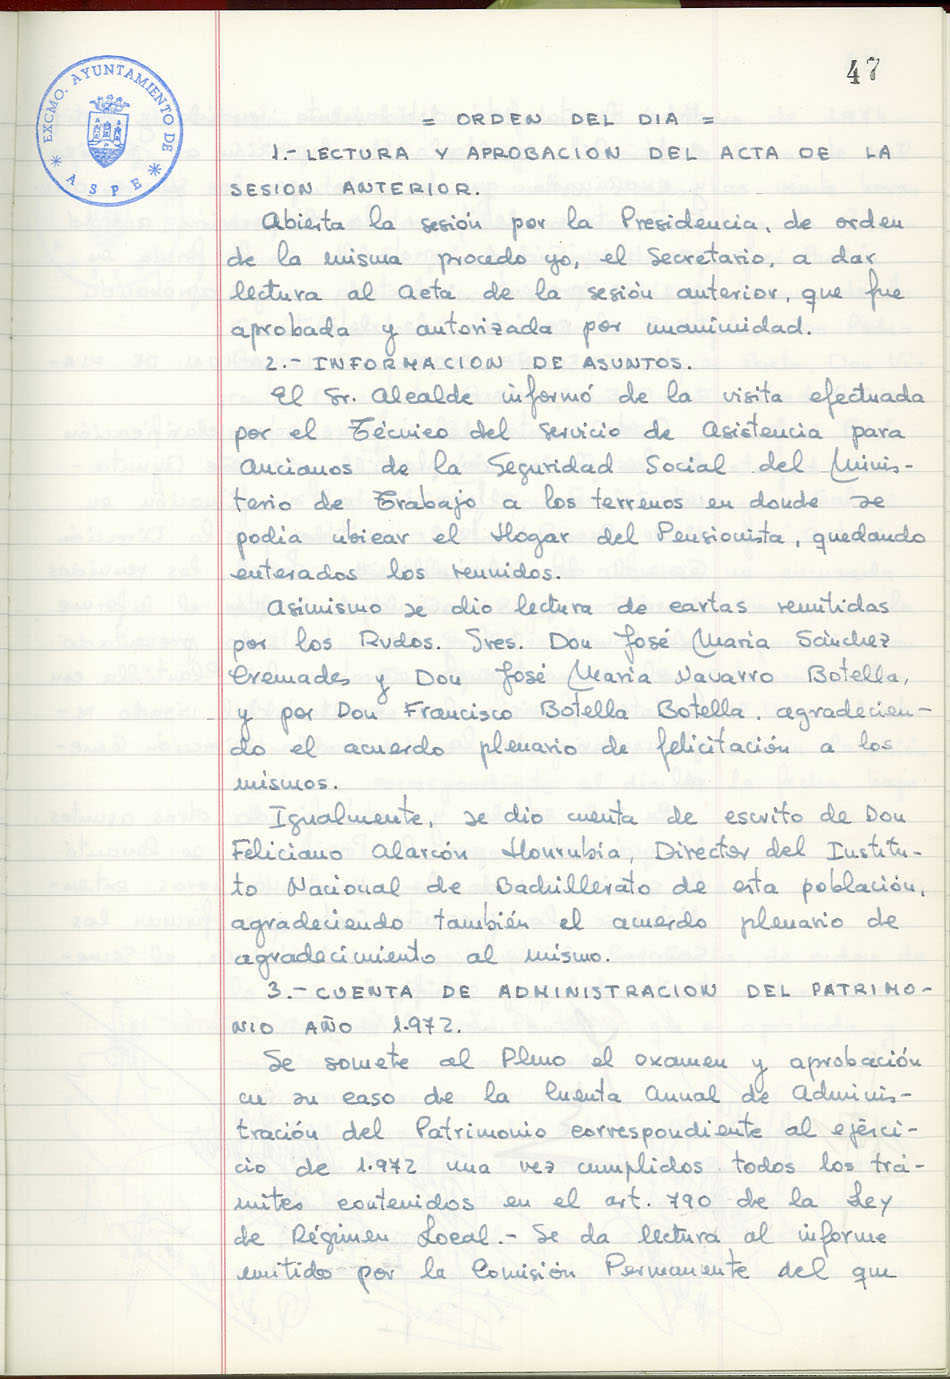 47
EXCMO. AYUNTAMIENTO DE
* ASPE *
= ORDEN DEL DIA =
1.- LECTURA Y APROBACION DEL ACTA DE LA
SESION ANTERIOR.
Abierta la sesión por la Presidencia, de orden
de la misma procedo yo, el Secretario, a dar
lectura al acta de la sesión anterior, que fue
aprobada y autorizada por unanimidad.
2.- INFORMACION DE ASUNTOS.
El Sr. Alcalde informó de la visita efectuada
por el Técnico del Servicio de Asistencia para
Ancianos de la Seguridad Social del Minis-
terio de Trabajo a los terrenos en donde se
podia ubicar el Hogar del Pensionista, quedando
enterados los reunidos.
Asimismo se dio lectura de cartas remitidas
por los Rvdos. Sres. Don José Maria Sánchez
Cremades y Don José Maria Navarro Botella,
y por Don Francisco Botella Botella, agradecien-
do el acuerdo plenario de felicitación a los
mismos.
Igualmente, se dio cuenta de escrito de Don
Feliciano Alarcón Honrubia, Director del Institu-
to Nacional de Bachillerato de esta población,
agradeciendo también el acuerdo plenario de
agradecimiento al mismo.
3.- CUENTA DE ADMINISTRACION DEL PATRIMO-
NIO AÑO 1.972.
Se somete al Pleno el examen y aprobación
en su caso de la Cuenta Anual de Adminis-
tración del Patrimonio correspondiente al ejerci-
cio de 1.972 una vez cumplidos todos los trá-
mites contenidos en el art. 790 de la Ley
de Régimen Local.- Se da lectura al informe
emitido por la Comisión Permanente del que